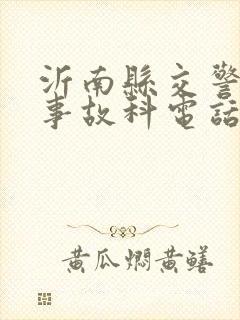 沂南縣交警
事故科電話
黃瓜燜黃鱔